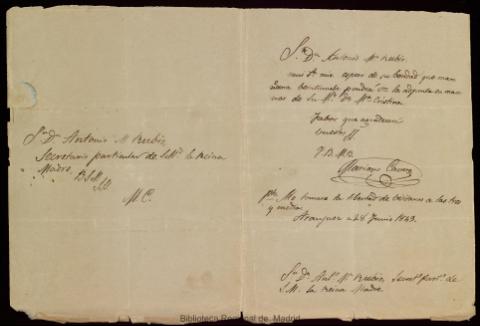 Sr Dn Antonio Ma Rubio
Secretario particular de S.M. la Reina
Madre.
B.S.M.
M.C.
Sr Dn Antonio Ma Rubio
mui Sr mio espero de su bondad que man
pondrá la adjunta en ma
nos de Su Md Da Ma Cristina
Favor que agradecerá
Mariano
Me tomare la libertad de a las tres
y media
Aranjuez a 28 Junio 1843.
Sr Dn Anto Ma Rubio, Secreto parte de
S.M. la Reina Madre
Biblioteca Regional de Madrid